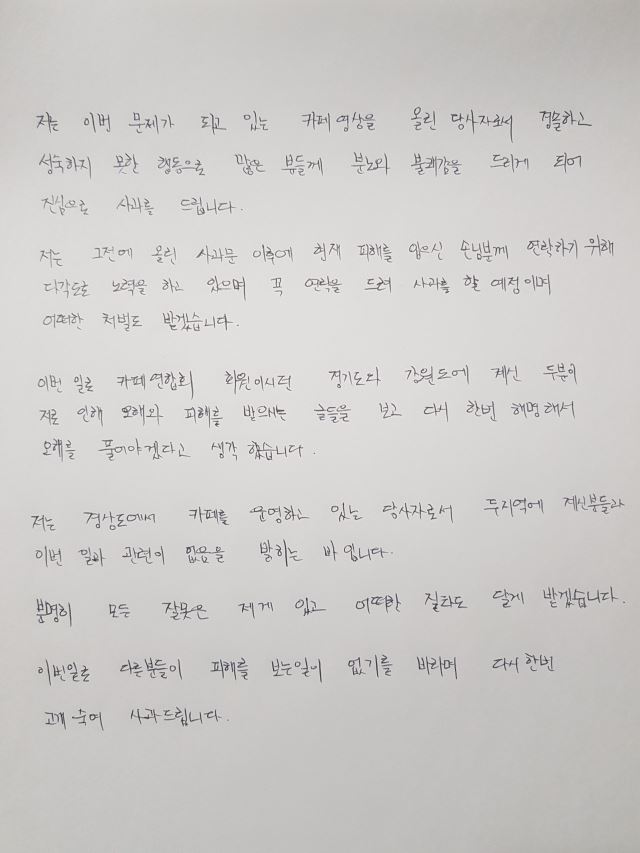 저는 이번 문제가 되고 있는 카페 영상을 올린 당사자로서 경솔하고
성숙하지 못한 행동으로 많은 분들께 분노와 불쾌감을 드리게 되어
진심으로 사과를 드립니다.
저는 그전에 올린 사과문 이후에 현재 피해를 입으신 손님분께 연락하기 위해
다각도로 노력을 하고 있으며 꼭 연락을 드려 사과를 할 예정이며
어떠한 처벌도 받겠습니다.
이번 일로 카페연합회 회원이시던 경기도와 강원도에 계신 두분이
저로 인해 오해와 피해를 받으시는 글들을 보고 다시 한번 해명해서
오해를 풀어야겠다고 생각했습니다.
저는 경상도에서 카페를 운영하고 있는 당사자로서 두지역에 계신분들과
이번 일과 관련이 없음을 밝히는 바입니다.
분명히 모든 잘못은 제게 있고 어떠한 질타도 달게 받겠습니다.
이번일로 다른분들이 피해를 보는일이 없기를 바라며 다시한번
고개 숙여 사과드립니다.